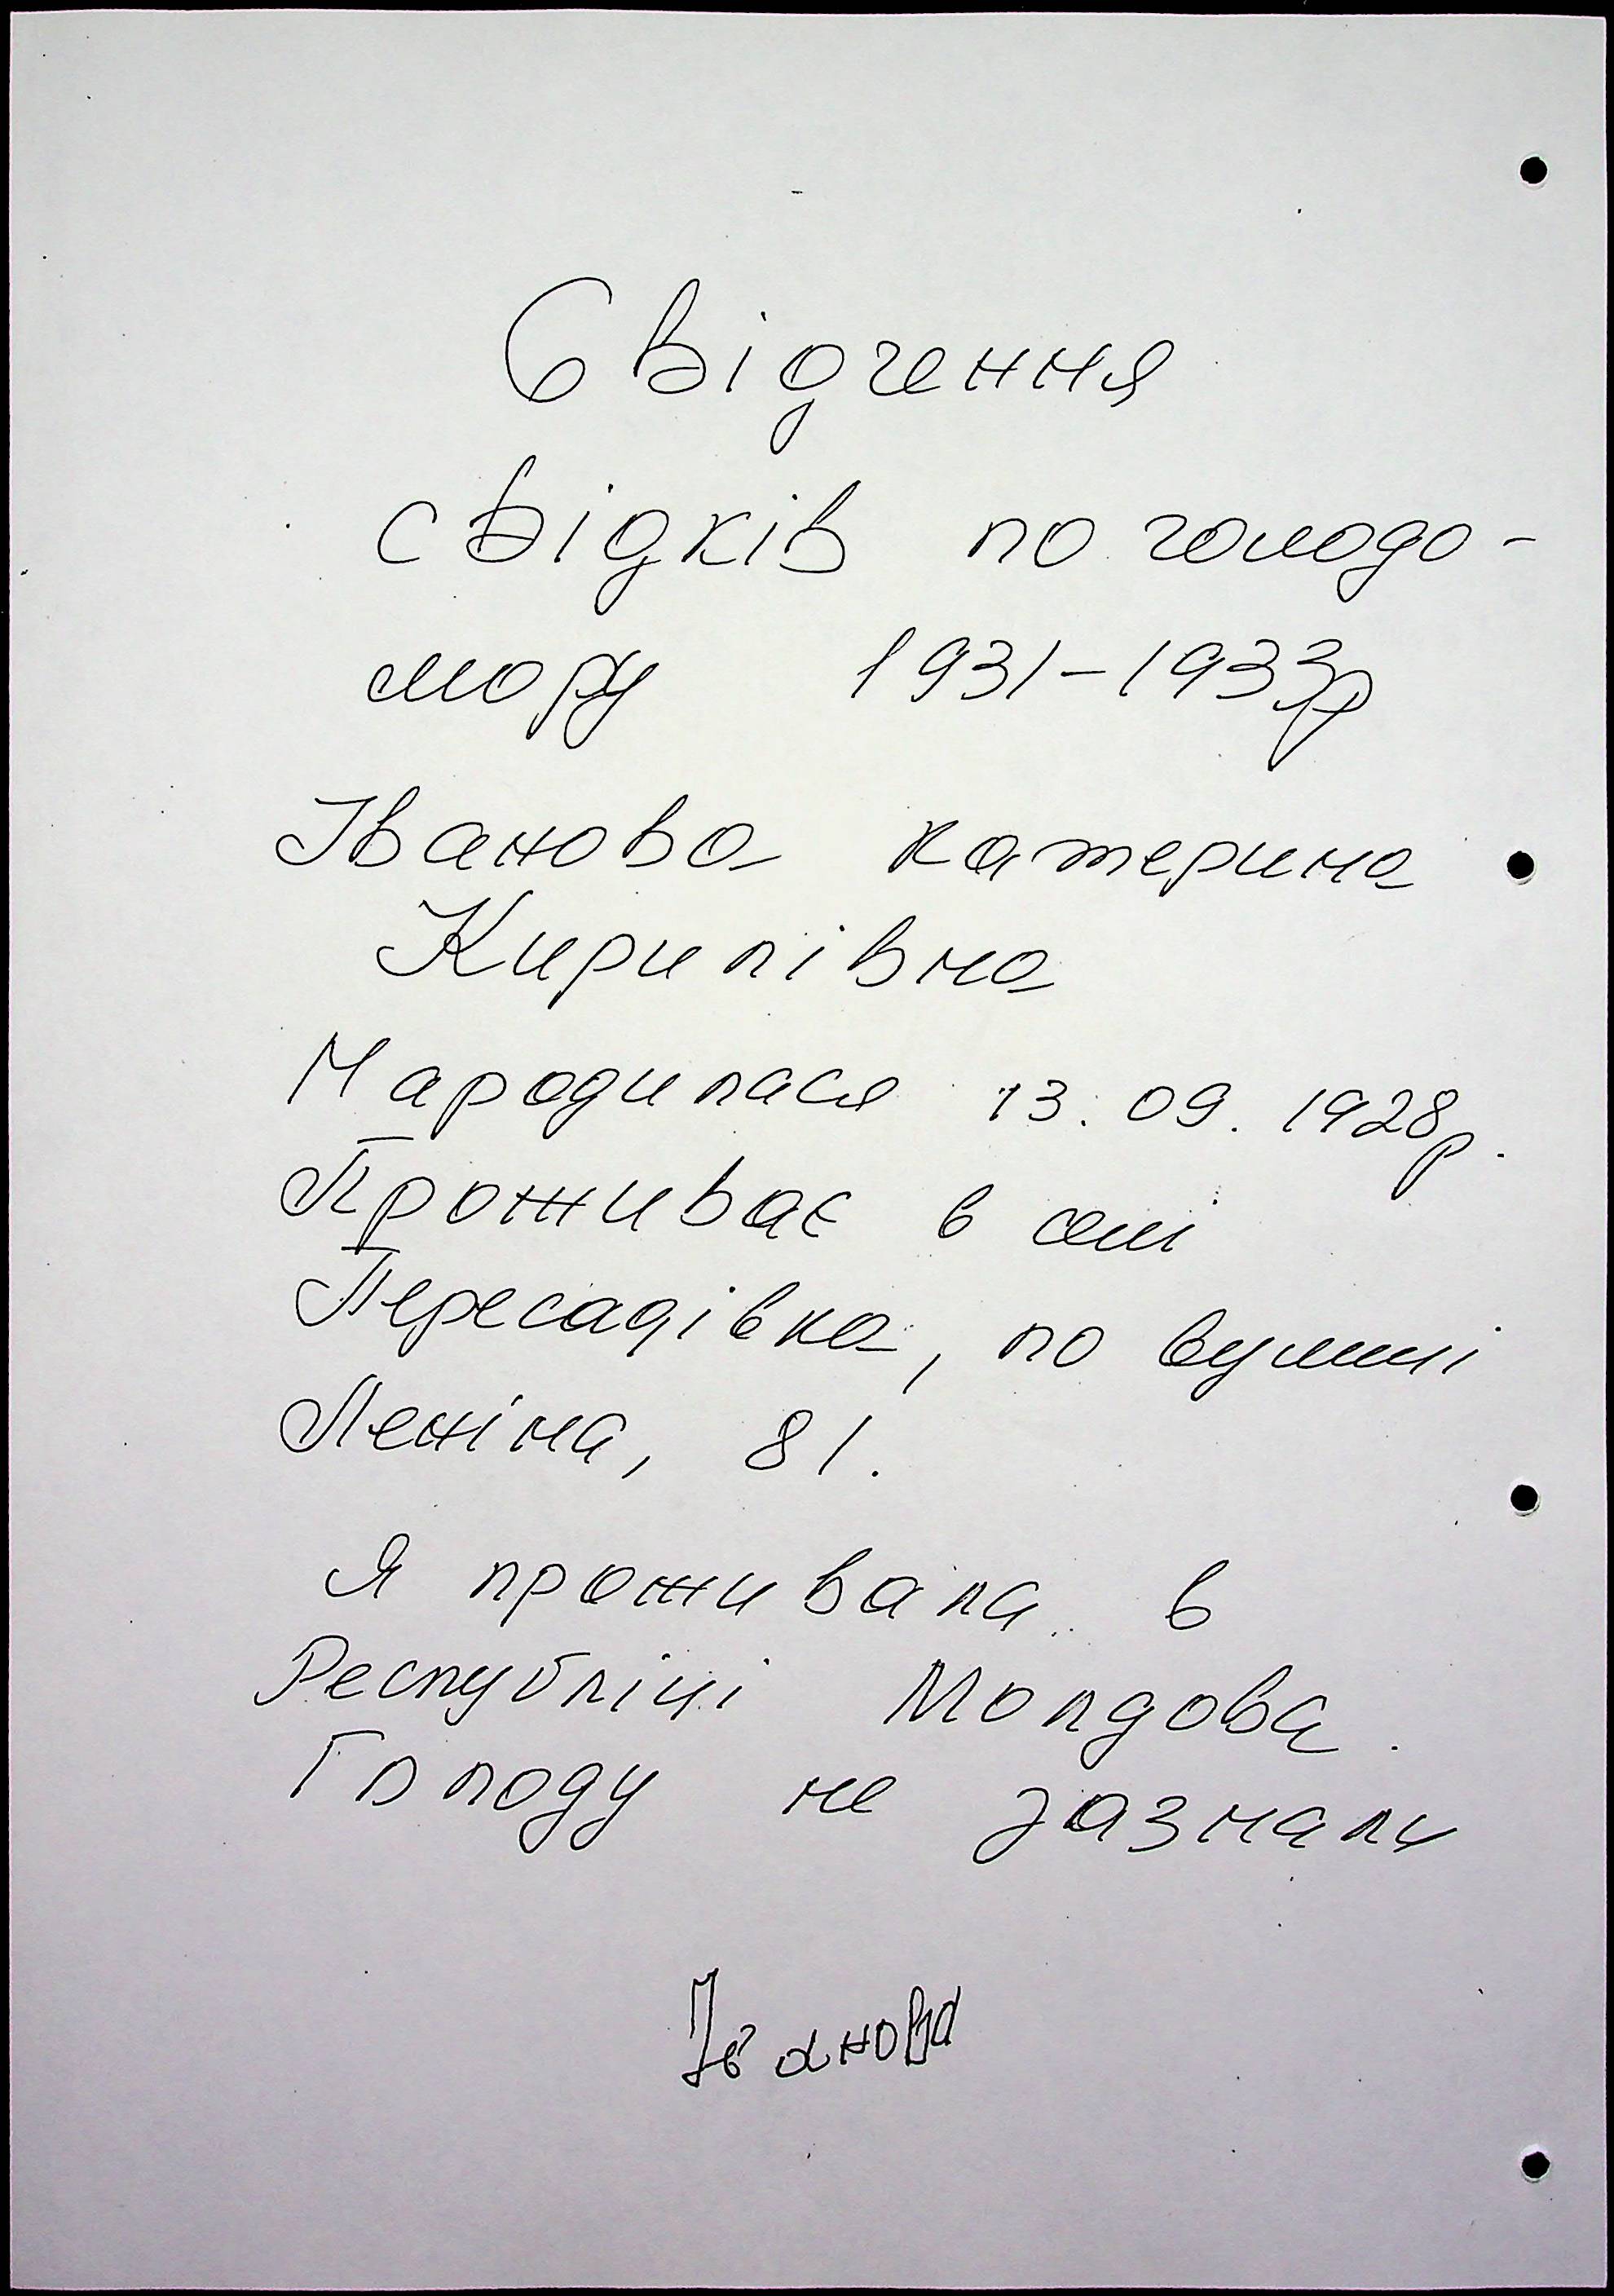 Свідчення
свідків по голодо-
мору 1931-1933р
Іванова Катерина
Кирилівна
Народилася 13.09.1928р.
Проживає в селі
Пересадівка, по вулиці
Леніна, 81.
Я проживала в
Республіці Молдова.
Голоду не зазнали
Іванова